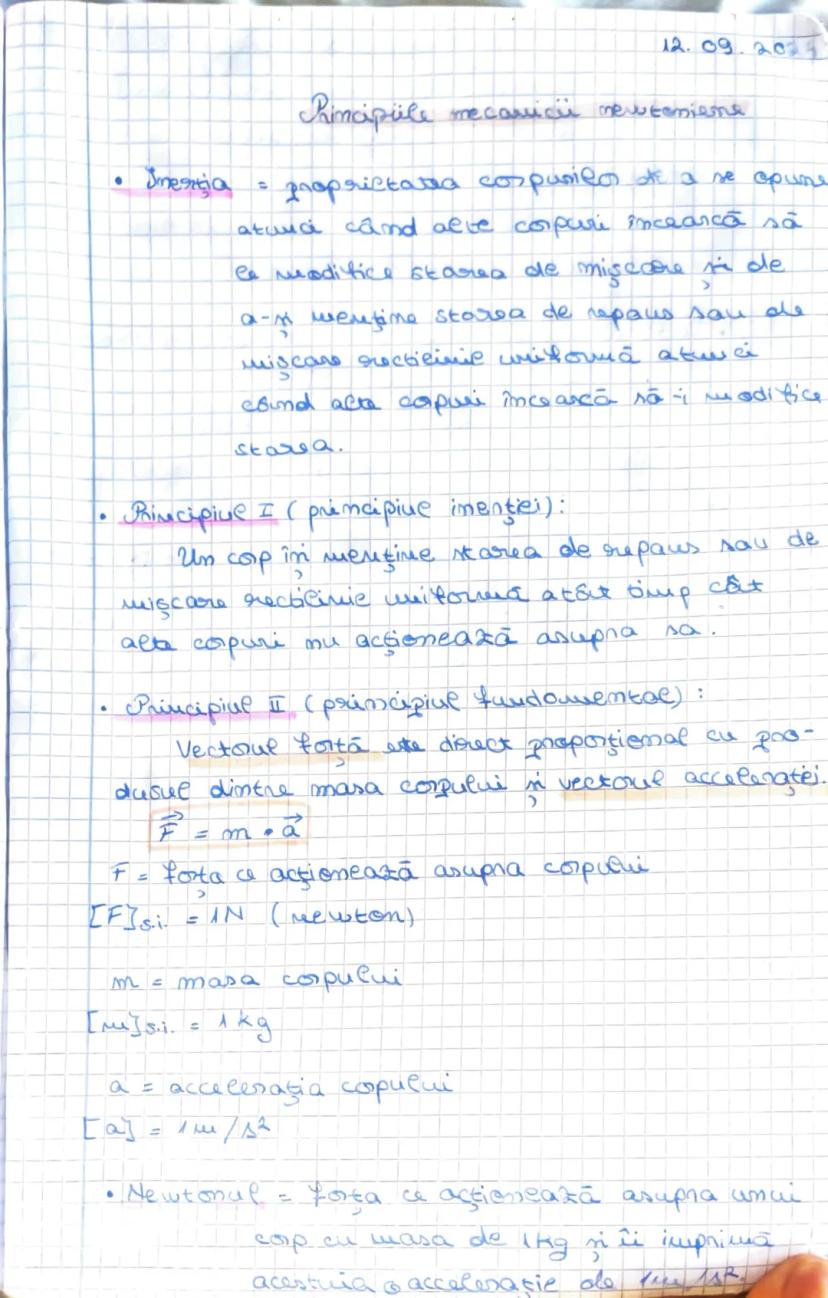 12.09.202
Principiile mecanicii newtoniene
• Inerția = proprietatea corpurilor de a se opune
atunci când alte corpuri încearcă să
le modifice starea de mișcare și de
a-și menține starea de repaus sau de
mișcare rectilinie uniformă atunci
când alte corpuri încearcă să-i modifice
starea.
• Principiul I (principiul inerției):
Un corp își menține starea de repaus sau de
mișcare rectilinie uniformă atât timp cât
alte corpuri nu acționează asupra sa.
• Principiul II (principiul fundamental):
Vectorul forță este direct proporțional cu pro-
dusul dintre masa corpului și vectorul accelerației.
F⃗ = m • a⃗
F = forța ce acționează asupra corpului
[F]s.i. = 1N (newton)
m = masa corpului
[m]s.i. = 1 kg
a = accelerația corpului
[a] = 1m/s²
• Newtonul = forța ce acționează asupra unui
corp cu masa de 1kg și îi imprimă
acestuia o accelerație de 1m/s².